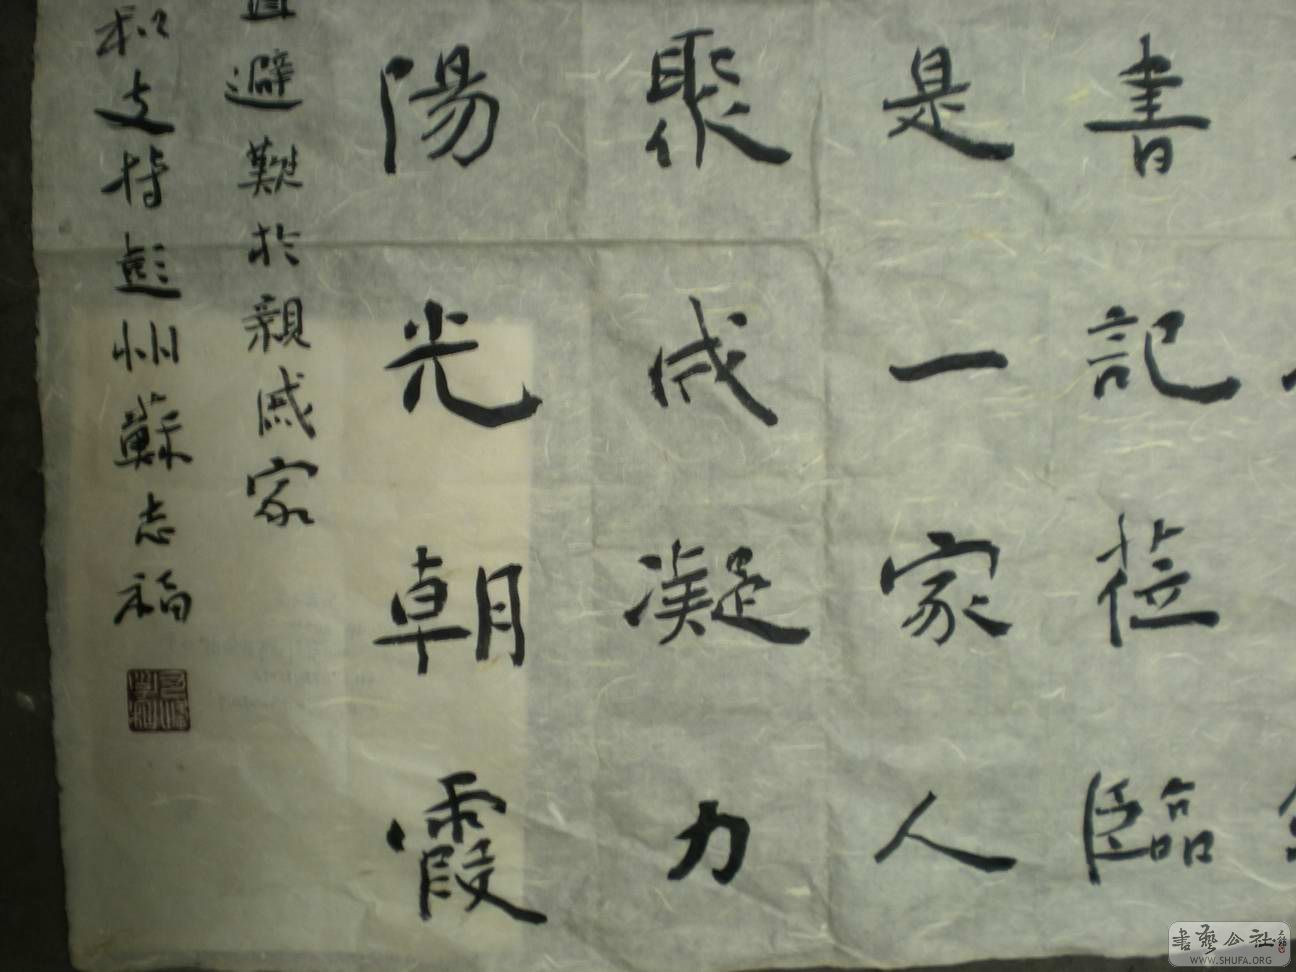 書記蒞臨
是一家人
聚成凝力
陽光朝霞
避難於親戚家
和支持彭州蘇志福
書藝公社
WWW.SHUFA.ORG